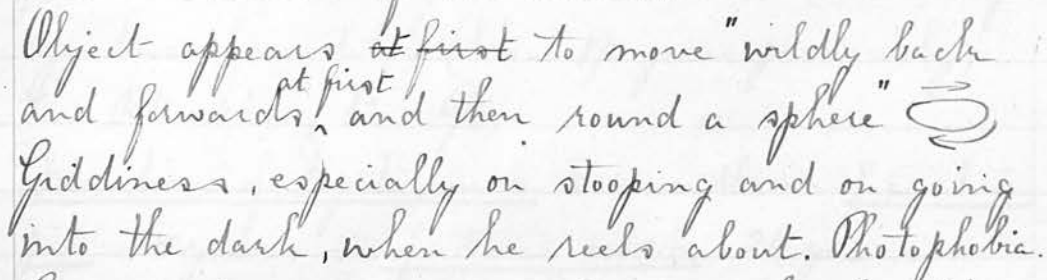 Object appears at first to move "wildly back
and forwards, at first and then round a sphere"
Giddiness, especially on stooping and on going
into the dark, when he reels about. Photophobia.